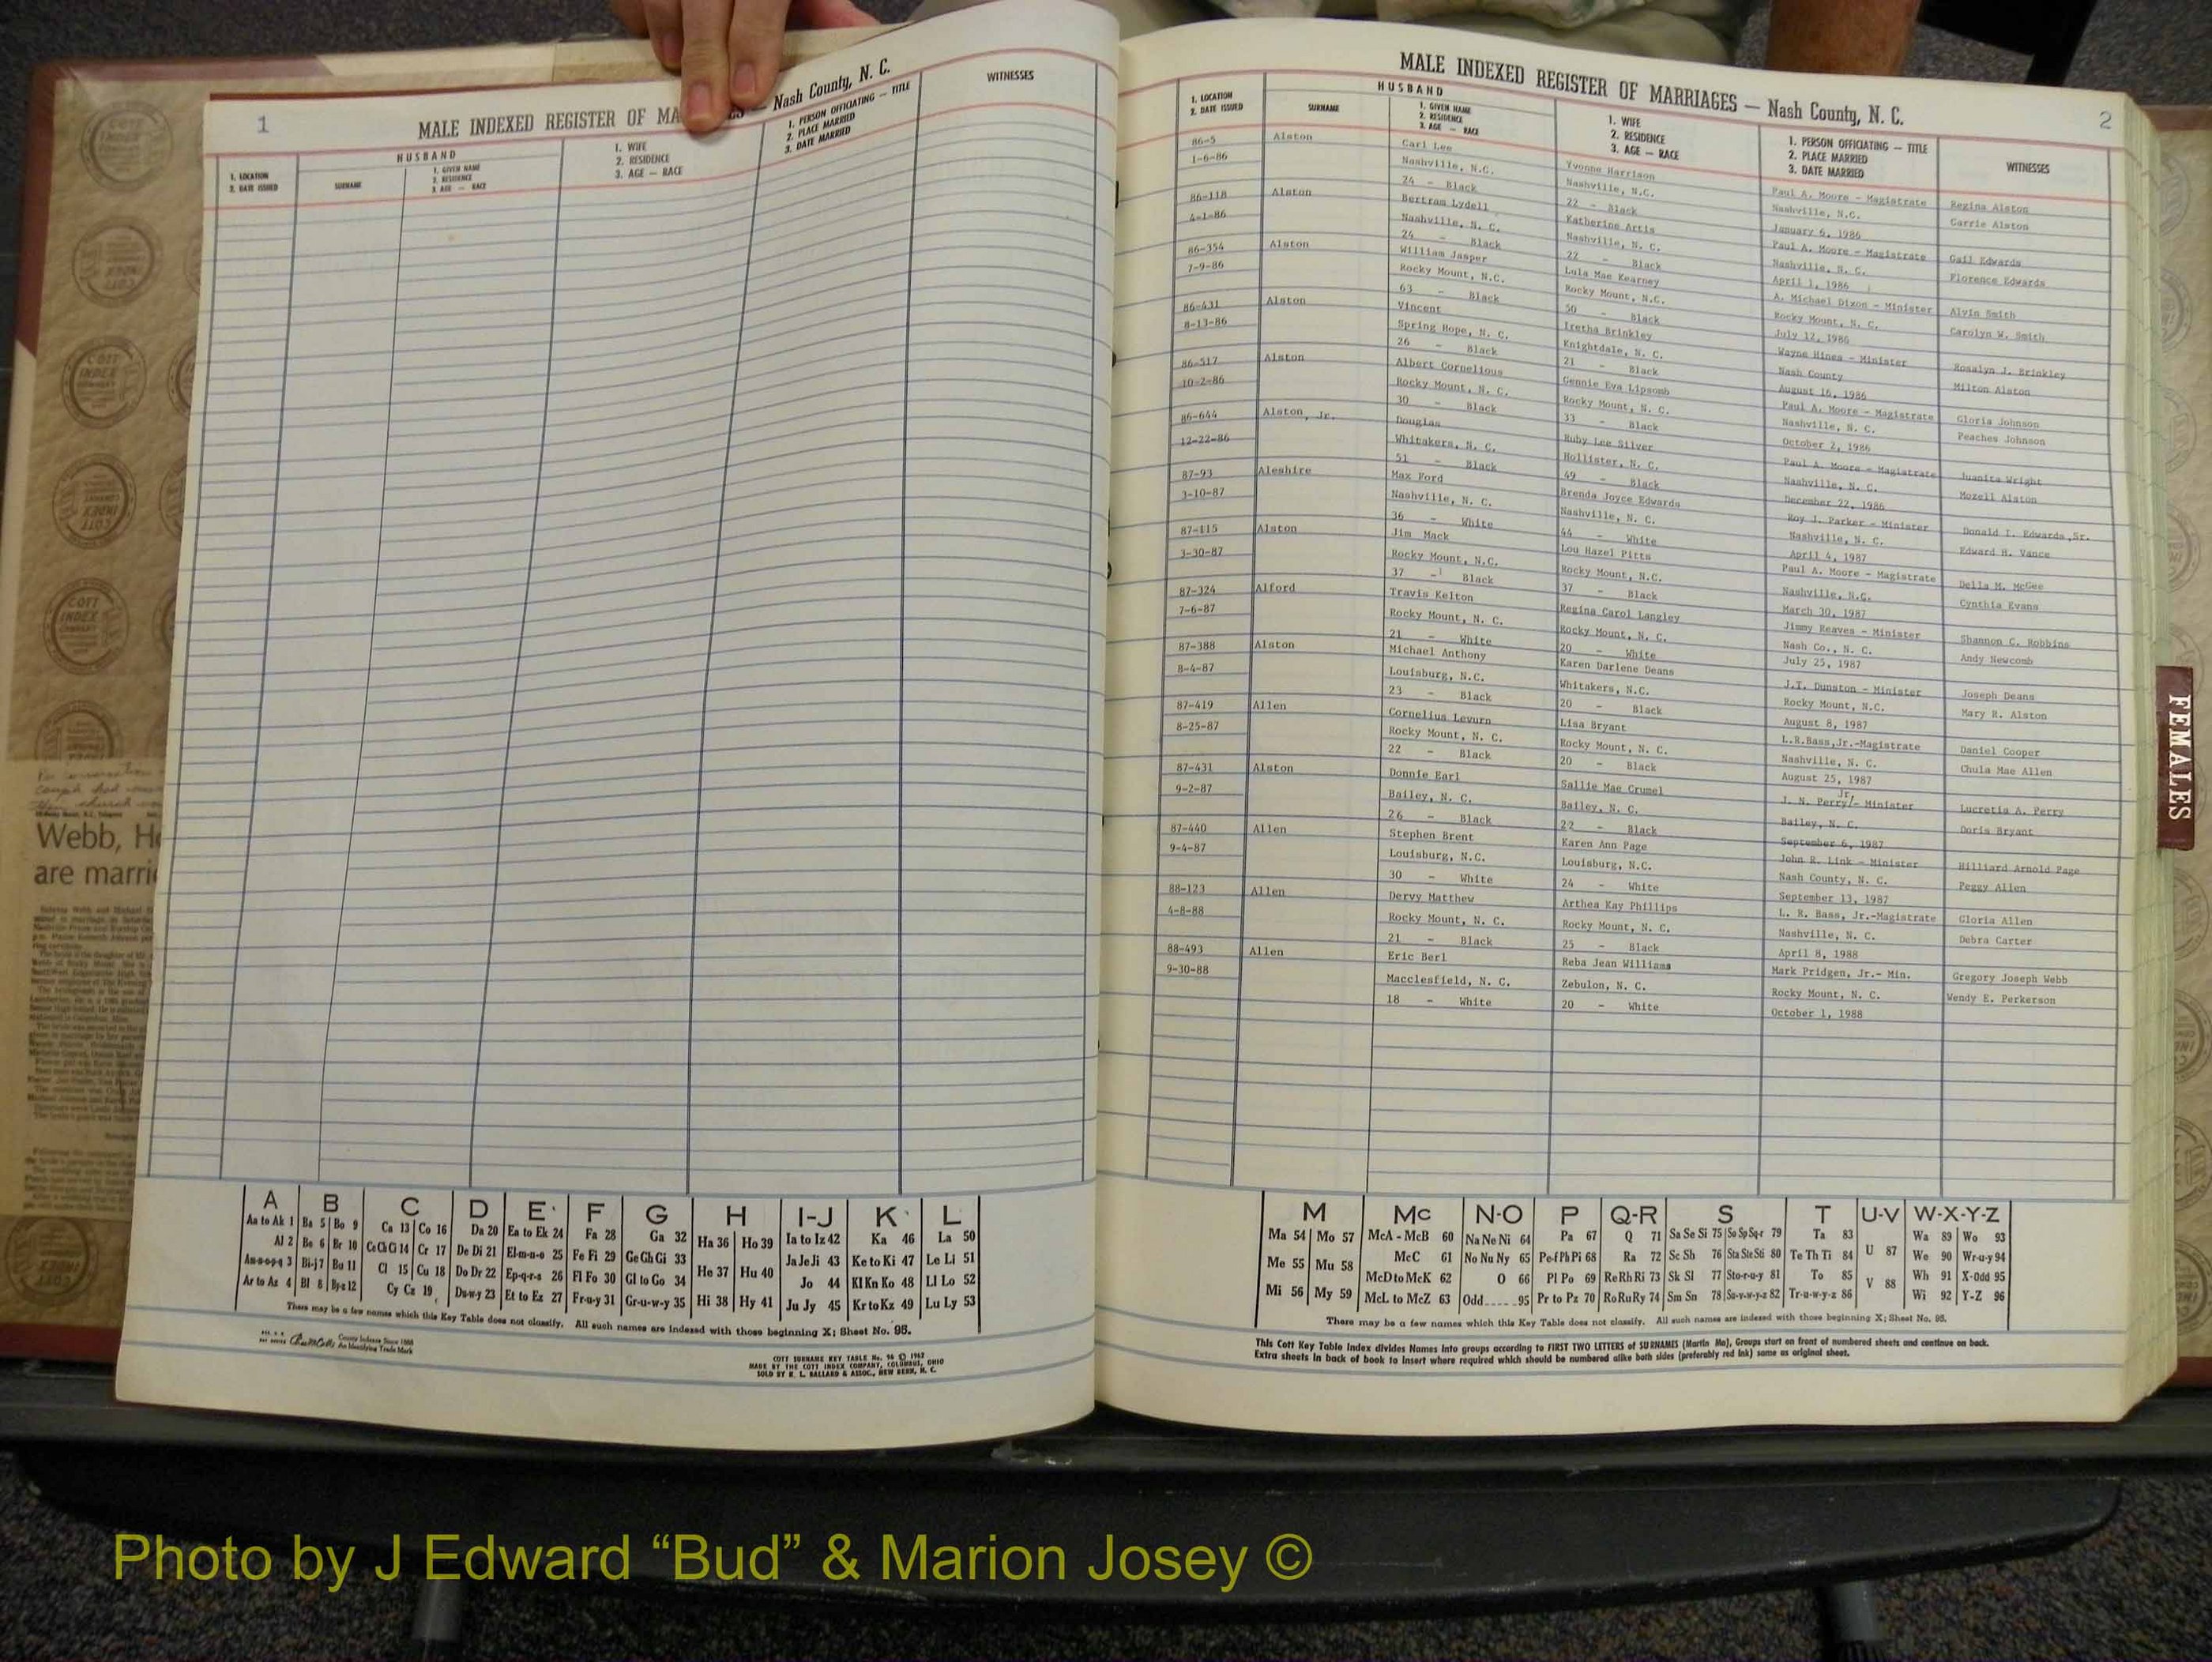 1
MALE INDEXED REGISTER OF MA
Nash County, N. C.
1. LOCATION
2. DATE ISSUED
HUSBAND
SURNAME
1. GIVEN NAME
2. RESIDENCE
3. AGE — RACE
1. WIFE
2. RESIDENCE
3. AGE — RACE
1. PERSON OFFICIATING — TITLE
2. PLACE MARRIED
3. DATE MARRIED
WITNESSES
Webb, He
are marri
A B C D E F G H I-J K L
Aa to Ak 1 Ba 5 Bo 9 Ca 13 Co 16 Da 20 Ea to Ek 24 Fa 28 Ga 32 Ha 36 Ho 39 Ia to Iz 42 Ka 46 La 50
Al 2 Be 6 Br 10 Ce Ch Ci 14 Cr 17 De Di 21 El-m-n-o 25 Fe Fi 29 Ge Gh Gi 33 He 37 Hu 40 Ja Je Ji 43 Ke to Ki 47 Le Li 51
An-o-p-q 3 Bi-j 7 Bu 11 Cl 15 Cu 18 Do Dr 22 Ep-q-r-s 26 Fl Fo 30 Gl to Go 34 Jo 44 Kl Kn Ko 48 Ll Lo 52
Ar to Az 4 Bl 8 By-z 12 Cy Cz 19 Du-w-y 23 Et to Ez 27 Fr-u-y 31 Gr-u-w-y 35 Hi 38 Hy 41 Ju Jy 45 Kr to Kz 49 Lu Ly 53
There may be a few names which this Key Table does not classify. All such names are indexed with those beginning X; Sheet No. 95.
County Indexes Since 1888
An Identifying Trade Mark
COTT SURNAME KEY TABLE No. 96 © 1962
MADE BY THE COTT INDEX COMPANY, COLUMBUS, OHIO
SOLD BY R. L. BALLARD & ASSOC., NEW BERN, N. C.
MALE INDEXED REGISTER OF MARRIAGES — Nash County, N. C.
2
1. LOCATION
2. DATE ISSUED
HUSBAND
SURNAME
1. GIVEN NAME
2. RESIDENCE
3. AGE — RACE
1. WIFE
2. RESIDENCE
3. AGE — RACE
1. PERSON OFFICIATING — TITLE
2. PLACE MARRIED
3. DATE MARRIED
WITNESSES
86-5 Alston Carl Lee Yvonne Harrison Paul A. Moore - Magistrate Regina Alston
1-6-86 Nashville, N.C. Nashville, N.C. Nashville, N.C. Carrie Alston
24 - Black 22 - Black January 6, 1986
86-118 Alston Bertram Lydell Katherine Artis Paul A. Moore - Magistrate Gail Edwards
4-1-86 Nashville, N. C. Nashville, N. C. Nashville, N. C. Florence Edwards
24 - Black 22 - Black April 1, 1986
86-354 Alston William Jasper Lula Mae Kearney A. Michael Dixon - Minister Alvin Smith
7-9-86 Rocky Mount, N.C. Rocky Mount, N.C. Rocky Mount, N. C. Carolyn W. Smith
63 - Black 50 - Black July 12, 1986
86-431 Alston Vincent Iretha Brinkley Wayne Hines - Minister Rosalyn J. Brinkley
8-13-86 Spring Hope, N. C. Knightdale, N. C. Nash County Milton Alston
26 - Black 21 - Black August 16, 1986
86-517 Alston Albert Cornelious Gennie Eva Lipsomb Paul A. Moore - Magistrate Gloria Johnson
10-2-86 Rocky Mount, N. C. Rocky Mount, N. C. Nashville, N. C. Peaches Johnson
30 - Black 33 - Black October 2, 1986
86-644 Alston, Jr. Douglas Ruby Lee Silver Paul A. Moore - Magistrate Juanita Wright
12-22-86 Whitakers, N. C. Hollister, N. C. Nashville, N. C. Mozell Alston
51 - Black 49 - Black December 22, 1986
87-93 Aleshire Max Ford Brenda Joyce Edwards Roy J. Parker - Minister Donald L. Edwards, Sr.
3-10-87 Nashville, N. C. Nashville, N. C. Nashville, N. C. Edward H. Vance
36 - White 44 - White April 4, 1987
87-115 Alston Jim Mack Lou Hazel Pitts Paul A. Moore - Magistrate Della M. McGee
3-30-87 Rocky Mount, N.C. Rocky Mount, N.C. Nashville, N.C. Cynthia Evans
37 - Black 37 - Black March 30, 1987
87-324 Alford Travis Kelton Regina Carol Langley Jimmy Reaves - Minister Shannon C. Robbins
7-6-87 Rocky Mount, N. C. Rocky Mount, N. C. Nash Co., N. C. Andy Newcomb
21 - White 20 - White July 25, 1987
87-388 Alston Michael Anthony Karen Darlene Deans J.T. Dunston - Minister Joseph Deans
8-4-87 Louisburg, N.C. Whitakers, N.C. Rocky Mount, N.C. Mary R. Alston
23 - Black 20 - Black August 8, 1987
87-419 Allen Cornelius Levurn Lisa Bryant L.R.Bass,Jr.-Magistrate Daniel Cooper
8-25-87 Rocky Mount, N. C. Rocky Mount, N. C. Nashville, N. C. Chula Mae Allen
22 - Black 20 - Black August 25, 1987
87-431 Alston Donnie Earl Sallie Mae Crumel J. N. Perry/ Jr. - Minister Lucretia A. Perry
9-2-87 Bailey, N. C. Bailey, N. C. Bailey, N. C. Doris Bryant
26 - Black 22 - Black September 6, 1987
87-440 Allen Stephen Brent Karen Ann Page John R. Link - Minister Hilliard Arnold Page
9-4-87 Louisburg, N.C. Louisburg, N.C. Nash County, N. C. Peggy Allen
30 - White 24 - White September 13, 1987
88-123 Allen Dervy Matthew Arthea Kay Phillips L. R. Bass, Jr.-Magistrate Gloria Allen
4-8-88 Rocky Mount, N. C. Rocky Mount, N. C. Nashville, N. C. Debra Carter
21 - Black 25 - Black April 8, 1988
88-493 Allen Eric Berl Reba Jean Williams Mark Pridgen, Jr.- Min. Gregory Joseph Webb
9-30-88 Macclesfield, N. C. Zebulon, N. C. Rocky Mount, N. C. Wendy E. Perkerson
18 - White 20 - White October 1, 1988
FEMALES
M Mc N-O P Q-R S T U-V W-X-Y-Z
Ma 54 Mo 57 McA - McB 60 Na Ne Ni 64 Pa 67 Q 71 Sa Se Si 75 So Sp Sq-r 79 Ta 83 U 87 Wa 89 Wo 93
Me 55 Mu 58 McC 61 No Nu Ny 65 Pe-f Ph Pi 68 Ra 72 Sc Sh 76 Sta Ste Sti 80 Te Th Ti 84 We 90 Wr-u-y 94
McD to McK 62 O 66 Pl Po 69 Re Rh Ri 73 Sk Sl 77 Sto-r-u-y 81 To 85 V 88 Wh 91 X-Odd 95
Mi 56 My 59 McL to McZ 63 Odd 95 Pr to Pz 70 Ro Ru Ry 74 Sm Sn 78 Su-v-w-y-z 82 Tr-u-w-y-z 86 Wi 92 Y-Z 96
There may be a few names which this Key Table does not classify. All such names are indexed with those beginning X; Sheet No. 95.
This Cott Key Table Index divides Names into groups according to FIRST TWO LETTERS of SURNAMES (Martin Ma), Groups start on front of numbered sheets and continue on back.
Extra sheets in back of book to insert where required which should be numbered alike both sides (preferably red ink) same as original sheet.
Photo by J Edward “Bud” & Marion Josey ©